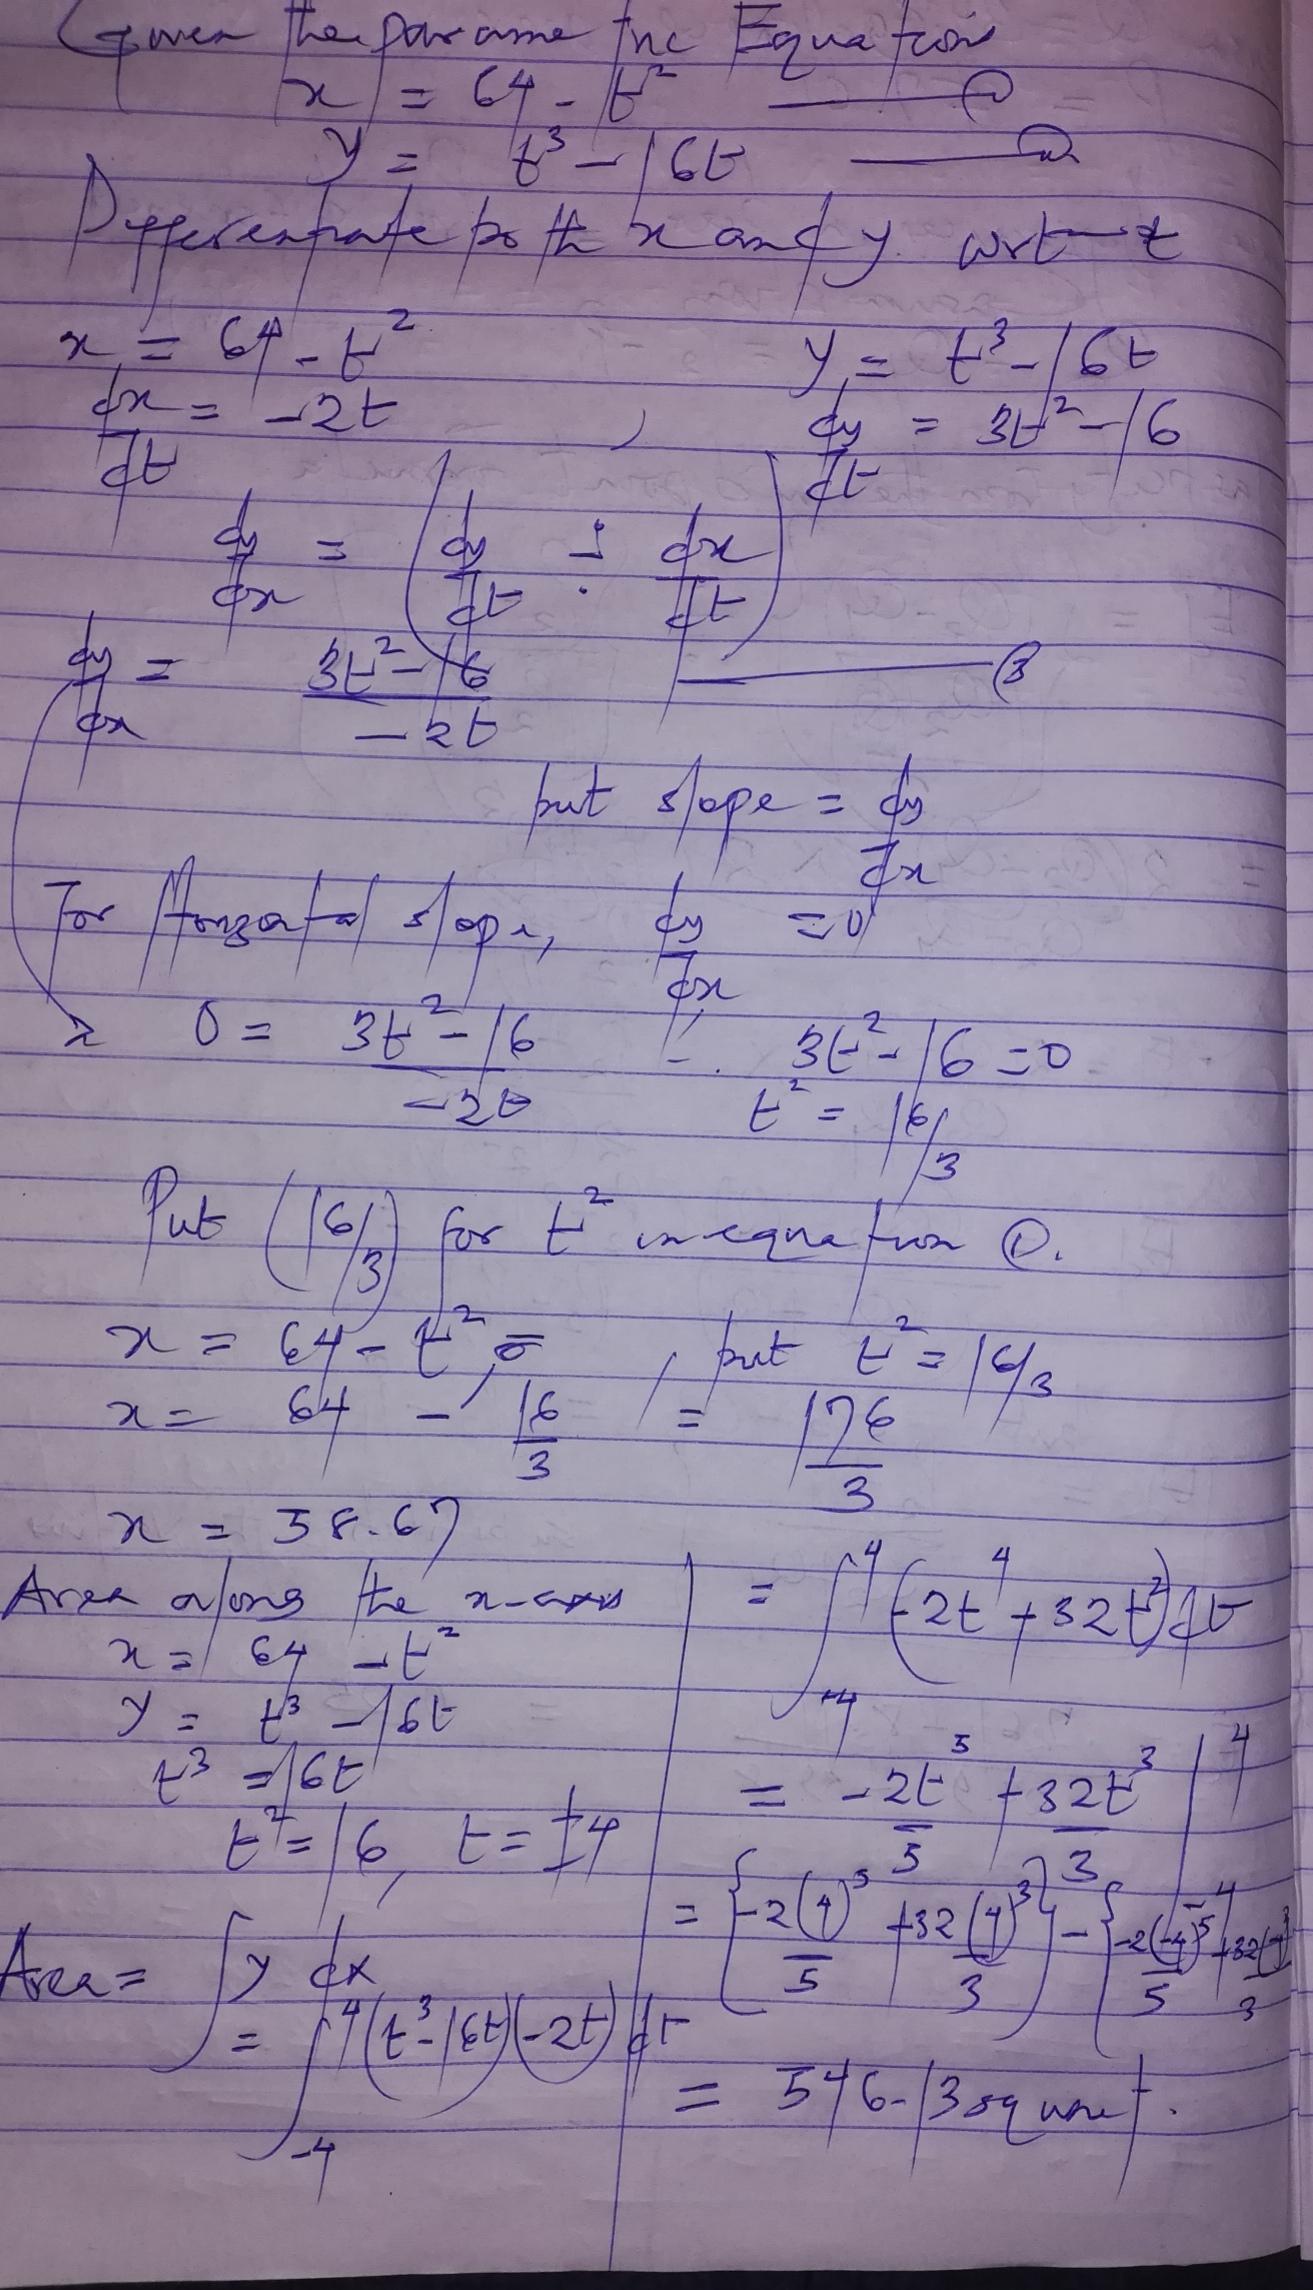 Given the parametric Equation
x = 64 - t² ——— ①
y = t³ - 16t ——— ②
Differentiate both x and y wrt t
x = 64 - t²
dx/dt = -2t ,
y = t³ - 16t
dy/dt = 3t² - 16
dy/dx = (dy/dt ÷ dx/dt)
dy/dx = (3t² - 16)/(-2t) ——— ③
but slope = dy/dx
For Horizontal slope, dy/dx = 0
0 = (3t² - 16)/(-2t) ∴ 3t² - 16 = 0
t² = 16/3
Put (16/3) for t² in equation ①.
x = 64 - t² = , but t² = 16/3
x = 64 - 16/3 , = 176/3
x = 58.67
Area along the x-axis
x = 64 - t²
y = t³ - 16t
t³ = 16t
t² = 16, t = ±4
Area = ∫ y dx
= ∫₋₄⁴ (t³ - 16t)(-2t) dt
= ∫₋₄⁴ (-2t⁴ + 32t²) dt
= -2t⁵/5 + 32t³/3 |₋₄⁴
= {-2(4)⁵/5 + 32(4)³/3} - {-2(-4)⁵/5 + 32(-4)³/3
= 546.13 square unit.